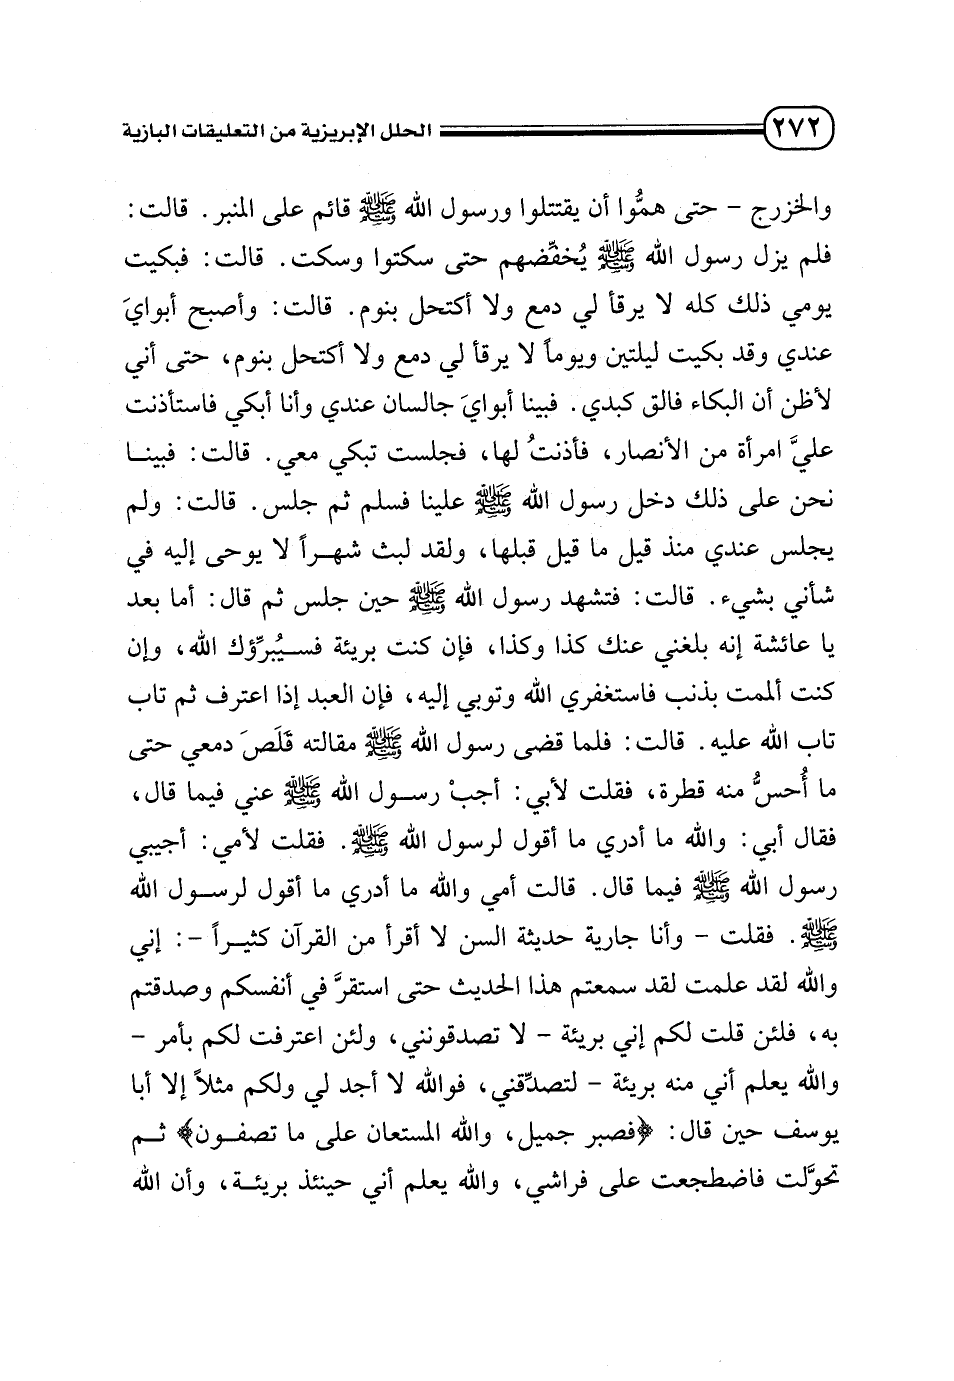 ٢٧٢ الحلل الإبريزية من التعليقات البازية
والخزرج - حتى همُّوا أن يقتتلوا ورسول الله ﷺ قائم على المنبر. قالت:
فلم يزل رسول الله ﷺ يُخفِّضهم حتى سكتوا وسكت. قالت: فبكيت
يومي ذلك كله لا يرقأ لي دمع ولا أكتحل بنوم. قالت: وأصبح أبوايَ
عندي وقد بكيت ليلتين ويوماً لا يرقأ لي دمع ولا أكتحل بنوم، حتى أني
لأظن أن البكاء فالق كبدي. فبينا أبوايَ جالسان عندي وأنا أبكي فاستأذنت
عليَّ امرأة من الأنصار، فأذنتُ لها، فجلست تبكي معي. قالت: فبينا
نحن على ذلك دخل رسول الله ﷺ علينا فسلم ثم جلس. قالت: ولم
يجلس عندي منذ قيل ما قيل قبلها، ولقد لبث شهراً لا يوحى إليه في
شأني بشيء. قالت: فتشهد رسول الله ﷺ حين جلس ثم قال: أما بعد
يا عائشة إنه بلغني عنك كذا وكذا، فإن كنت بريئة فسيُبرِّؤك الله، وإن
كنت ألممت بذنب فاستغفري الله وتوبي إليه، فإن العبد إذا اعترف ثم تاب
تاب الله عليه. قالت: فلما قضى رسول الله ﷺ مقالته قَلَصَ دمعي حتى
ما أُحسُّ منه قطرة، فقلت لأبي: أجبْ رسول الله ﷺ عني فيما قال،
فقال أبي: والله ما أدري ما أقول لرسول الله ﷺ. فقلت لأمي: أجيبي
رسول الله ﷺ فيما قال. قالت أمي والله ما أدري ما أقول لرسول الله
ﷺ. فقلت - وأنا جارية حديثة السن لا أقرأ من القرآن كثيراً -: إني
والله لقد علمت لقد سمعتم هذا الحديث حتى استقرَّ في أنفسكم وصدقتم
به، فلئن قلت لكم إني بريئة - لا تصدقونني، ولئن اعترفت لكم بأمر -
والله يعلم أني منه بريئة - لتصدِّقني، فوالله لا أجد لي ولكم مثلاً إلا أبا
يوسف حين قال: ﴿فصبر جميل، والله المستعان على ما تصفون﴾ ثم
تحوَّلت فاضطجعت على فراشي، والله يعلم أني حينئذ بريئة، وأن الله